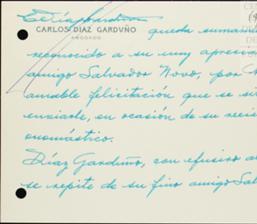 CARLOS DÍAZ GARDUÑO
ABOGADO
queda sumamente
reconocido a su muy apreciado
amigo Salvador Novo, por
amable felicitación que se
enviarle, en ocasión de su
onomástico.
Díaz Garduño, con efusivo
se repite de su fino amigo Sal